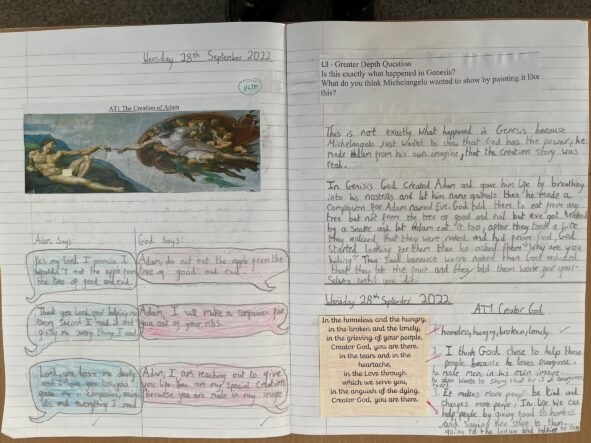 Wensday 28th September 2022
AT1 The Creation of Adam
Adam Says:
God Says:
Yes my lord I promise I
wouldn't eat the apple from
the tree of good and evil.
Adam, do not eat the apple from the
tree of good and evil.
Thank you Lord for helping me
every second I need it and
giving me every thing I need
Adam, I will make a companion for
you out of your ribs.
Lord, you love me deeply
and I love you too, you
gave me a companion,
and everything I need
Adam, I am reaching out to give
you life. You are my special creation
because you are made in my image
L3 - Greater Depth Question
Is this exactly what happened in Genesis?
What do you think Michelangelo wanted to show by painting it like
this?
This is not exactly what happened in Genesis because
Michelangelo just wanted to show that God has the power, he
made Adam from his own imagine, that the creation story was
real.
In Genisis God created Adam and gave him life by breathing
into his nostrils and let him name animals then he made a
companion for Adam named Eve. God told them to eat from any
tree but not from the tree of good and evil but eve got
by a snake and let Adam eat it too, after they took a bite
they realized that they were naked and hid from God. God
started looking for them then he asked them "Why are you
hiding" They said because we're naked then God realized
that they ate the fruit and
until you die.
Wensday 28th September 2022
AT1 Creator God
In the homeless and the hungry,
in the broken and the lonely,
in the grieving of your people,
Creator God, you are there.
in the tears and in the
heartache,
in the Love through
which we serve you,
in the anguish of the dying,
Creator God, you are there.
homeless, hungry, broken, lonely
2. I think God chose to help these
people because he loves everyone.
he made men in his own image
he also wants to show that he is in everyones
heart
It makes more people be kind and
changes more people. In life we can
help people by giving food to homeless
and saying nice things to them
going to the lonley and talking to them